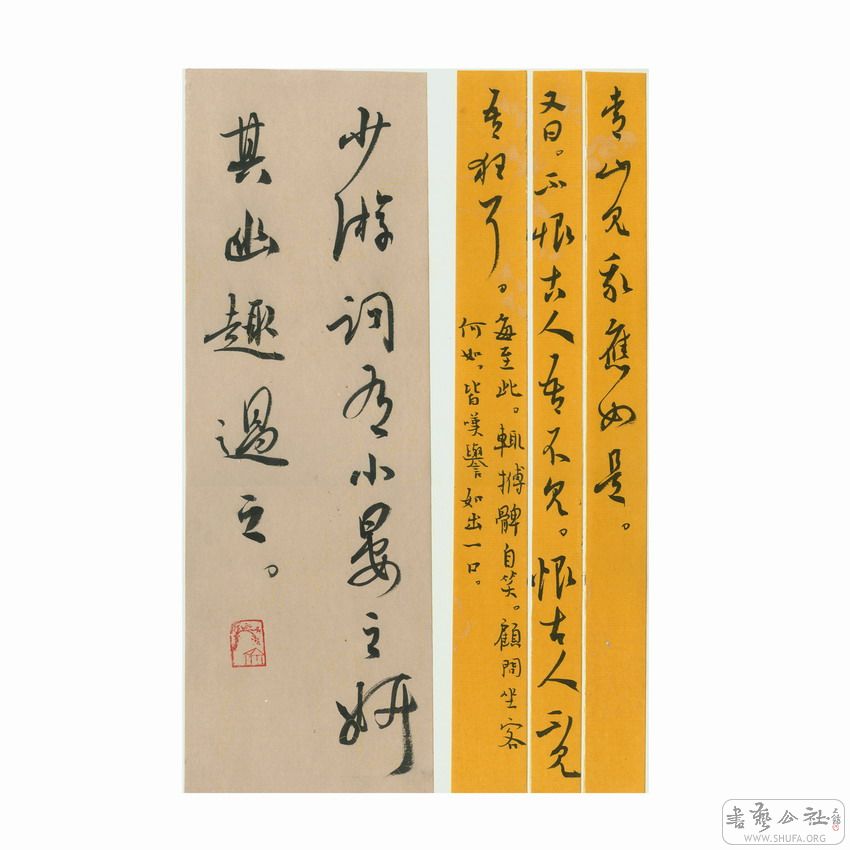 青山見我應如是。
又曰。不恨古人吾不見。恨古人不見
吾狂耳。
每至此。輒搏髀自笑。顧問坐客
何如。皆嘆譽如出一口。
少游詞有小晏之妍
其幽趣過之。
書藝公社
WWW.SHUFA.ORG